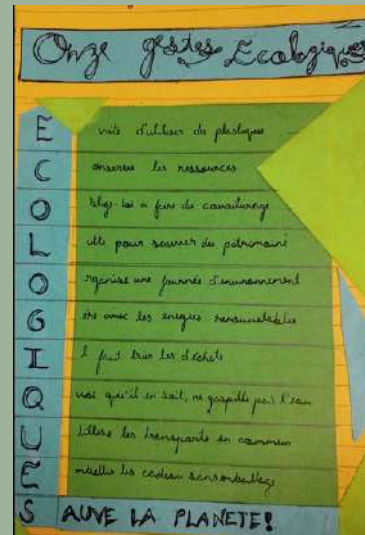 Onze gestes Ecologiques
E vite d'utiliser du plastique
C onserver les ressources
O blige-toi à faire du covoiturage
L utte pour sauver du patrimoine
O rganise une journée d'environnement
G ère avec les énergies renouvelables
I l faut trier les déchets
Q uoi qu'il en soit, ne gaspille pas l'eau
U tilise les transports en commun
E mbellis les cadeau sans emballage
S AUVE LA PLANETE!